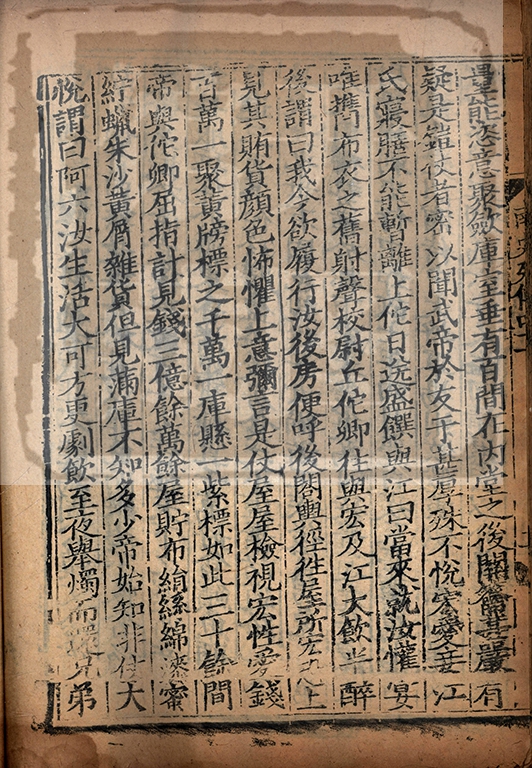 量能恣意聚斂庫室垂有百間在內堂之後關籥甚嚴有
疑是鎧仗者密以聞武帝於友于甚厚殊不悅宏愛妾江
氏寢膳不能暫離上佗日送盛饌與江曰當來就汝懽宴
唯攜布衣之舊射聲校尉丘佗卿往與宏及江大飲半醉
後謂曰我今欲履行汝後房便呼後閤輿徑往屋所宏恐上
見其賄貨顏色怖懼上意彌言是仗屋屋檢視宏性愛錢
百萬一聚黃牓標之千萬一庫懸一紫標如此三十餘間
帝與佗卿屈指計見錢三億餘萬餘屋貯布絹絲綿漆蜜
紵蠟朱沙黃屑雜貨但見滿庫不知多少帝始知非仗大
悅謂曰阿六汝生活大可方更劇飲至夜舉燭而還兄弟